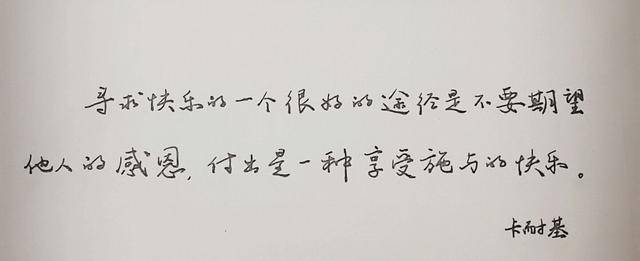 寻求快乐的一个很好的途径是不要期望
他人的感恩,付出是一种享受施与的快乐。
卡耐基